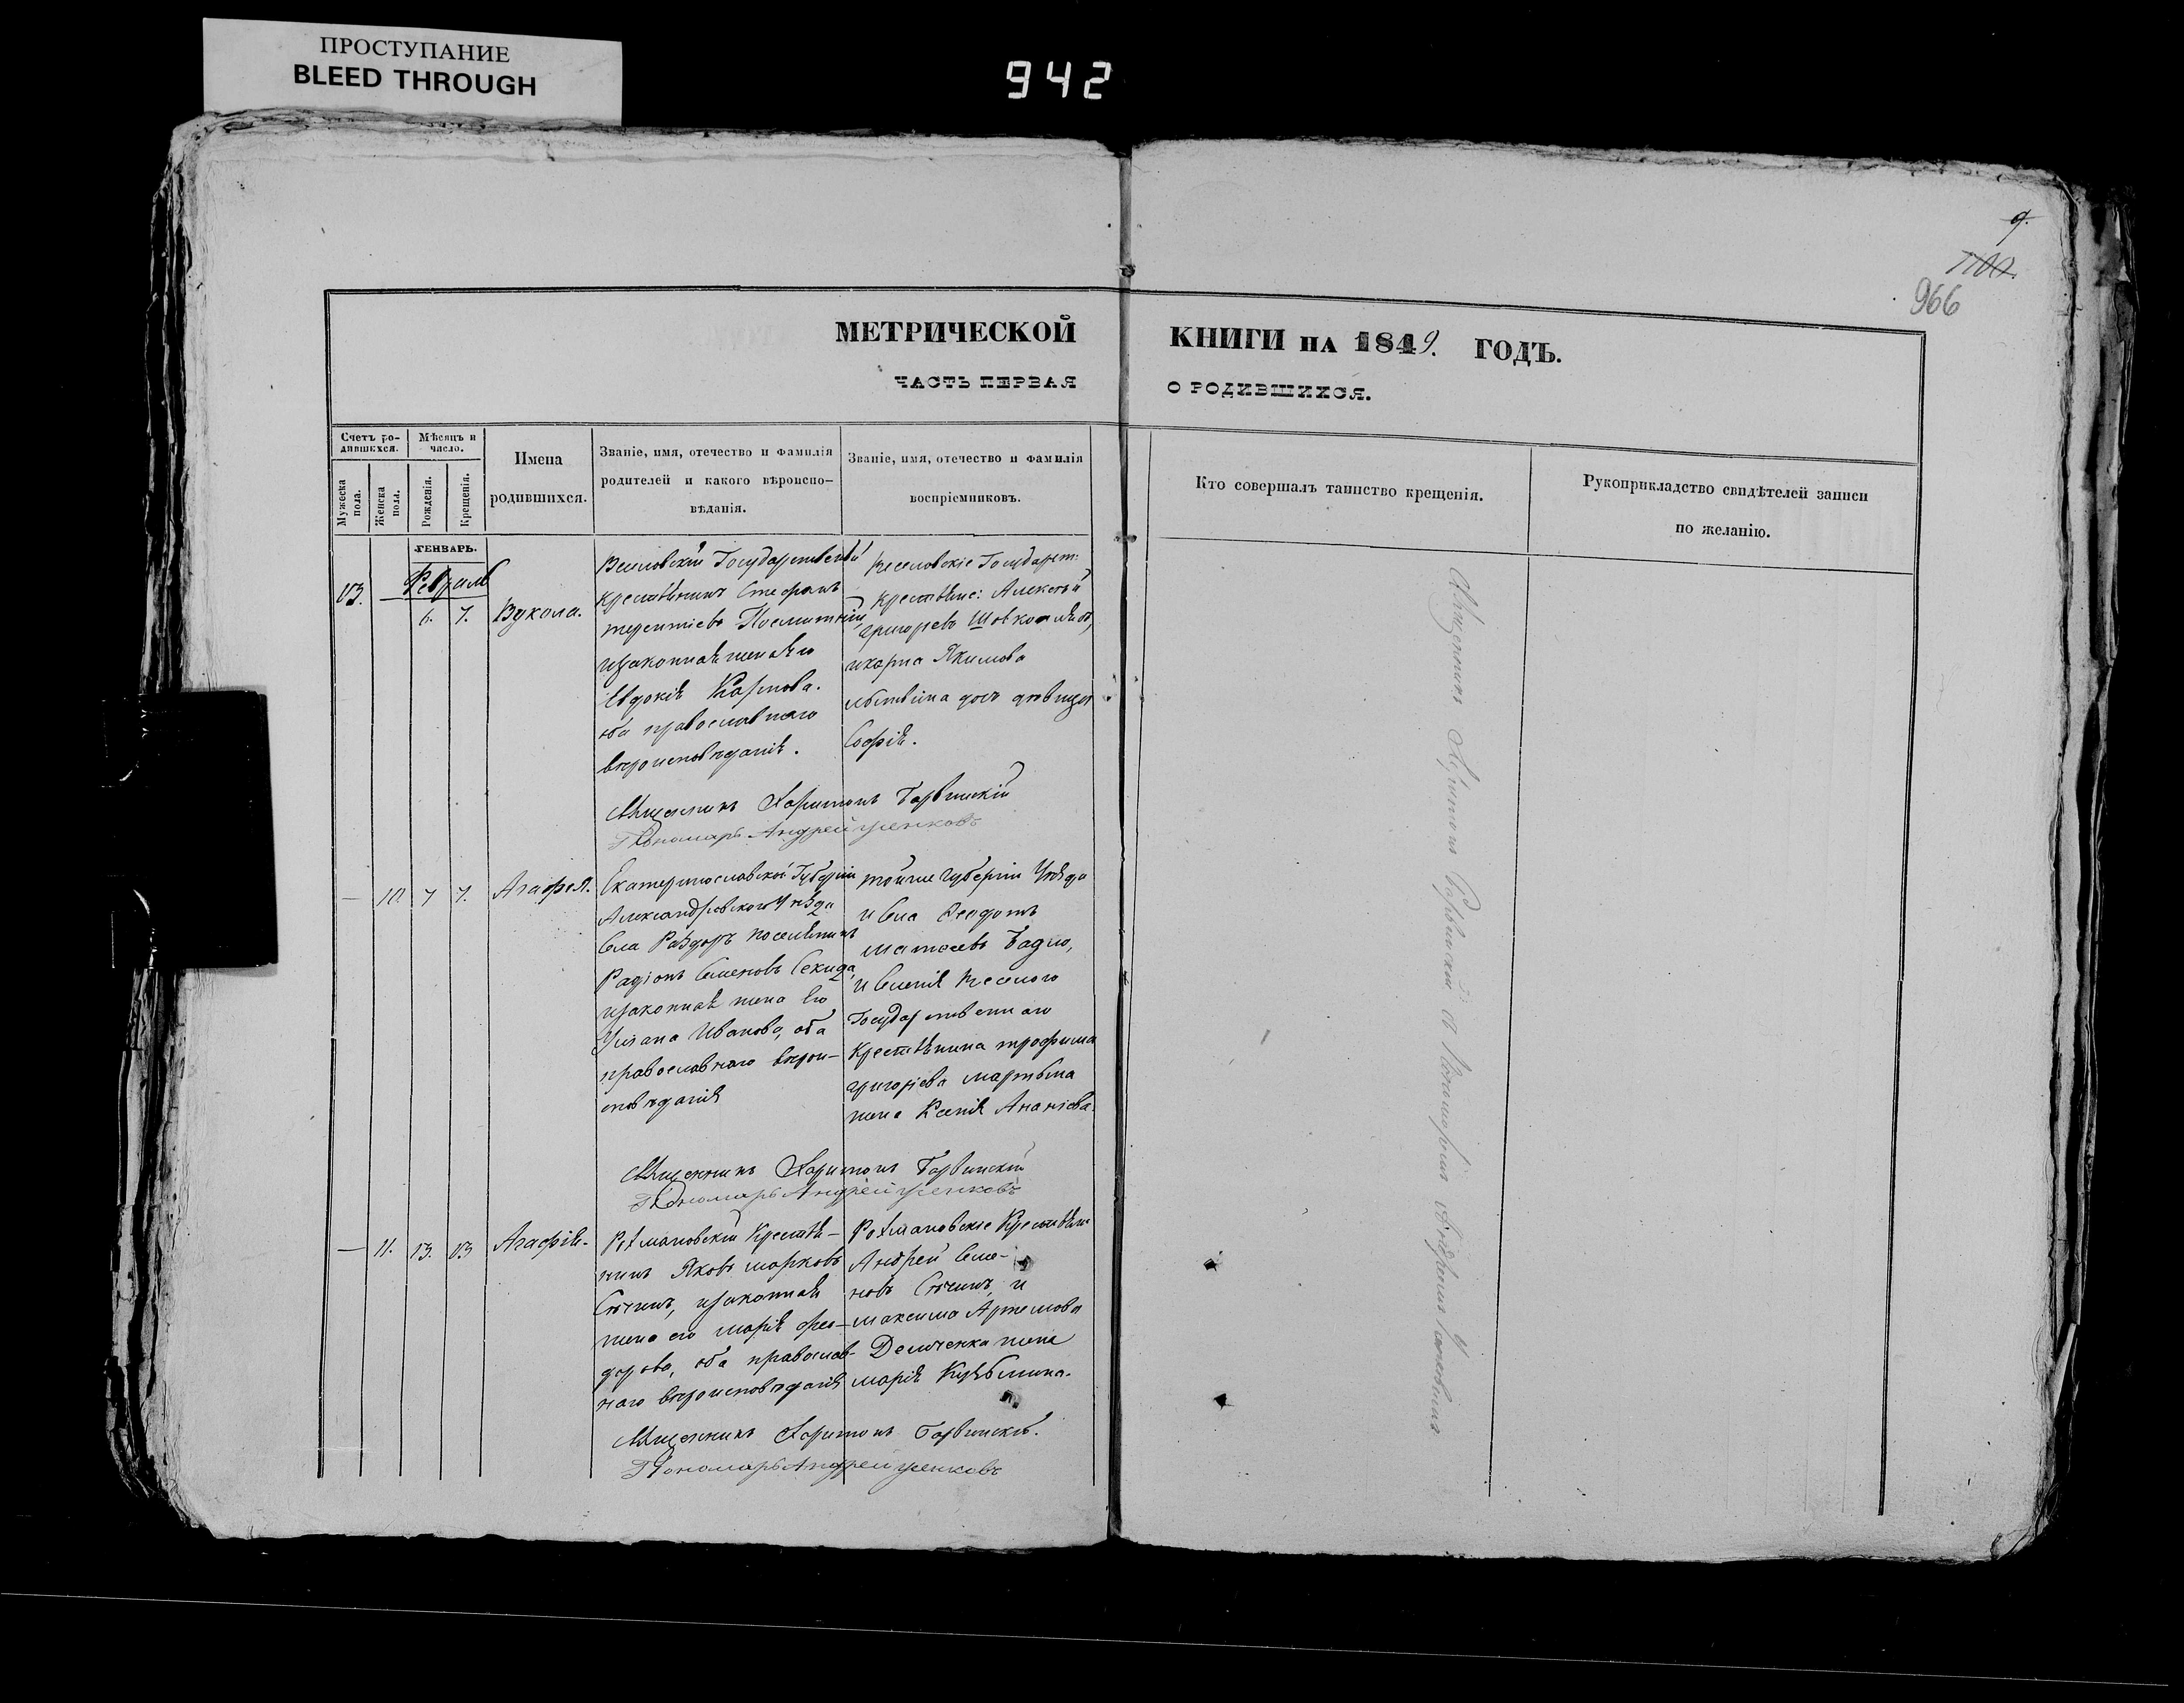 ПРОСТУПАНИЕ
BLEED THROUGH
942
9.
966
МЕТРИЧЕСКОЙ КНИГИ НА 1849. ГОДЪ.
ЧАСТЬ ПЕРВАЯ О РОДИВШИХСЯ.
Счетъ родившихся.
Мужеска пола.
Женска пола.
Мѣсяцъ и число.
Рожденія.
Крещенія.
Имена
родившихся.
Званіе, имя, отечество и фамилія
родителей и какого вѣроиспо-
вѣданія.
Званіе, имя, отечество и фамилія
воспріемниковъ.
Кто совершалъ таинство крещенія.
Рукоприкладство свидѣтелей записи
по желанію.
ГЕНВАРЬ.
13.
6. 7. Вукола.
Государственный
крестьянинъ Стефанъ
терентіевъ
изаконная жена его
Евдокія Карпова.
оба православнаго
вѣроисповѣданія.
Веселовскіе Государст:
крестьяне: Алексѣй
григорьевъ
икарпа Якимова
дочь дѣвица
Софія.
Священникъ Харитонъ Барвинскій
Пономарь Андрей
— 10 7 7. Агафея.
Екатеринославской Губерніи
Александровскаго уѣзда
Села Раздоръ поселянинъ
Радіонъ Семеновъ Секида,
изаконная жена Его
Иванова, оба
православнаго вѣрои-
сповѣданія
тойже губерніи Уѣзда
и Села Феодотъ
матвеевъ
и Селенія Веселого
Государственнаго
Крестьянина трофима
григоріева
жена Ксенія Ананіева.
Священникъ Харитонъ Барвинскій
Пономарь Андрей
— 11. 13. 13 Агафія.
Крестья-
нинъ Яковъ марковъ
изаконная
жена его марія фео-
дорова, оба православ-
наго вѣроисповѣданія
Крестьяне
Андрей Семе-
новъ и
максима Артемова
Демченка жена
марія Кузьмина.
Священникъ Харитонъ Барвинскій.
Пономарь Андрей
Священникъ Харитонъ Барвинскій